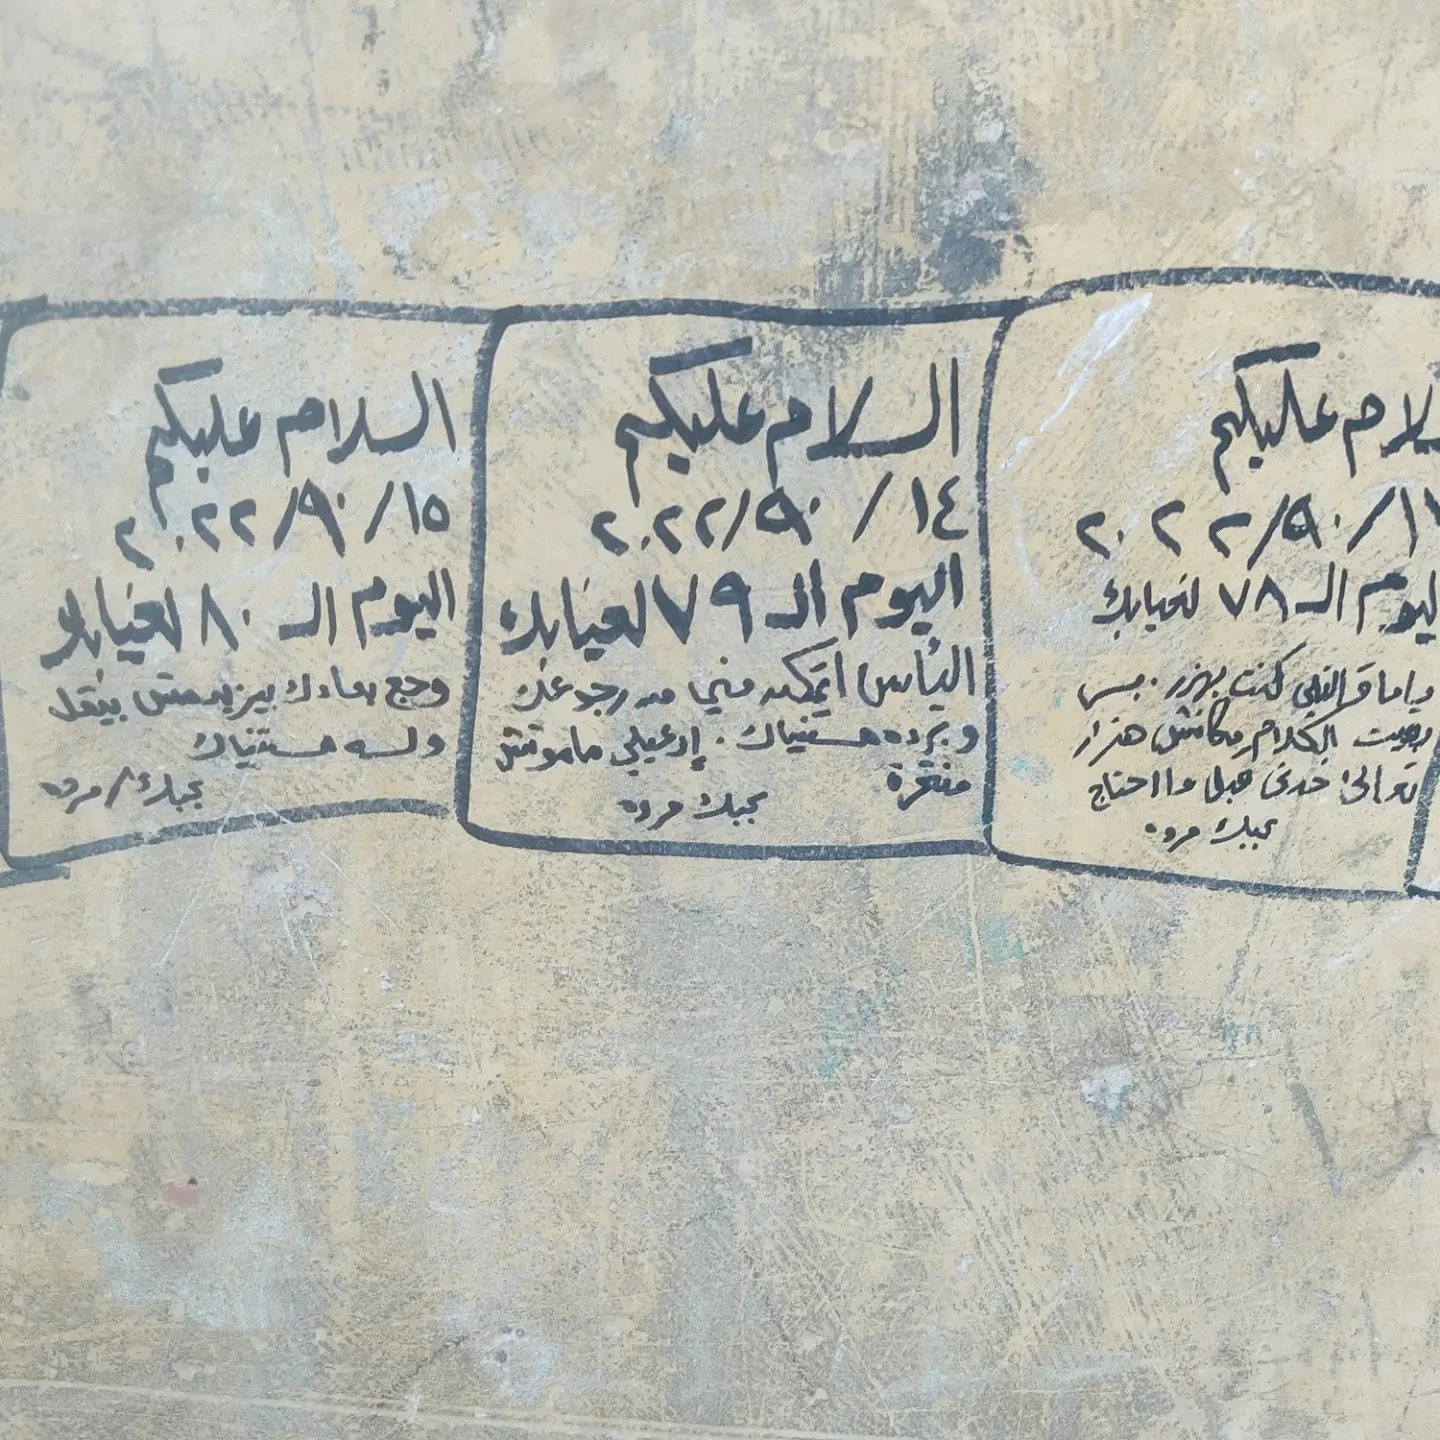 لام عليكم
/٠٩/٢٠٢٢
ليوم الـ ٧٨ لغيابك
ياما قالتلي كنت بهزر. بس
الكلام مكانش هزار
تعالى خدى
بحبك مروه
السلام عليكم
١٤/٠٩/٢٠٢٢
اليوم الـ ٧٩ لغيابك
اليأس اتمكن مني من رجوعك
وبرده مستنياك. إدعيلي ماموتش
منتحرة
بحبك مروه
السلام عليكم
١٥/٠٩/٢٠٢٢
اليوم الـ ٨٠ لغيابك
وجع بعادك بيزيد مش بيقل
ولسه مستنياك
بحبك/مروه